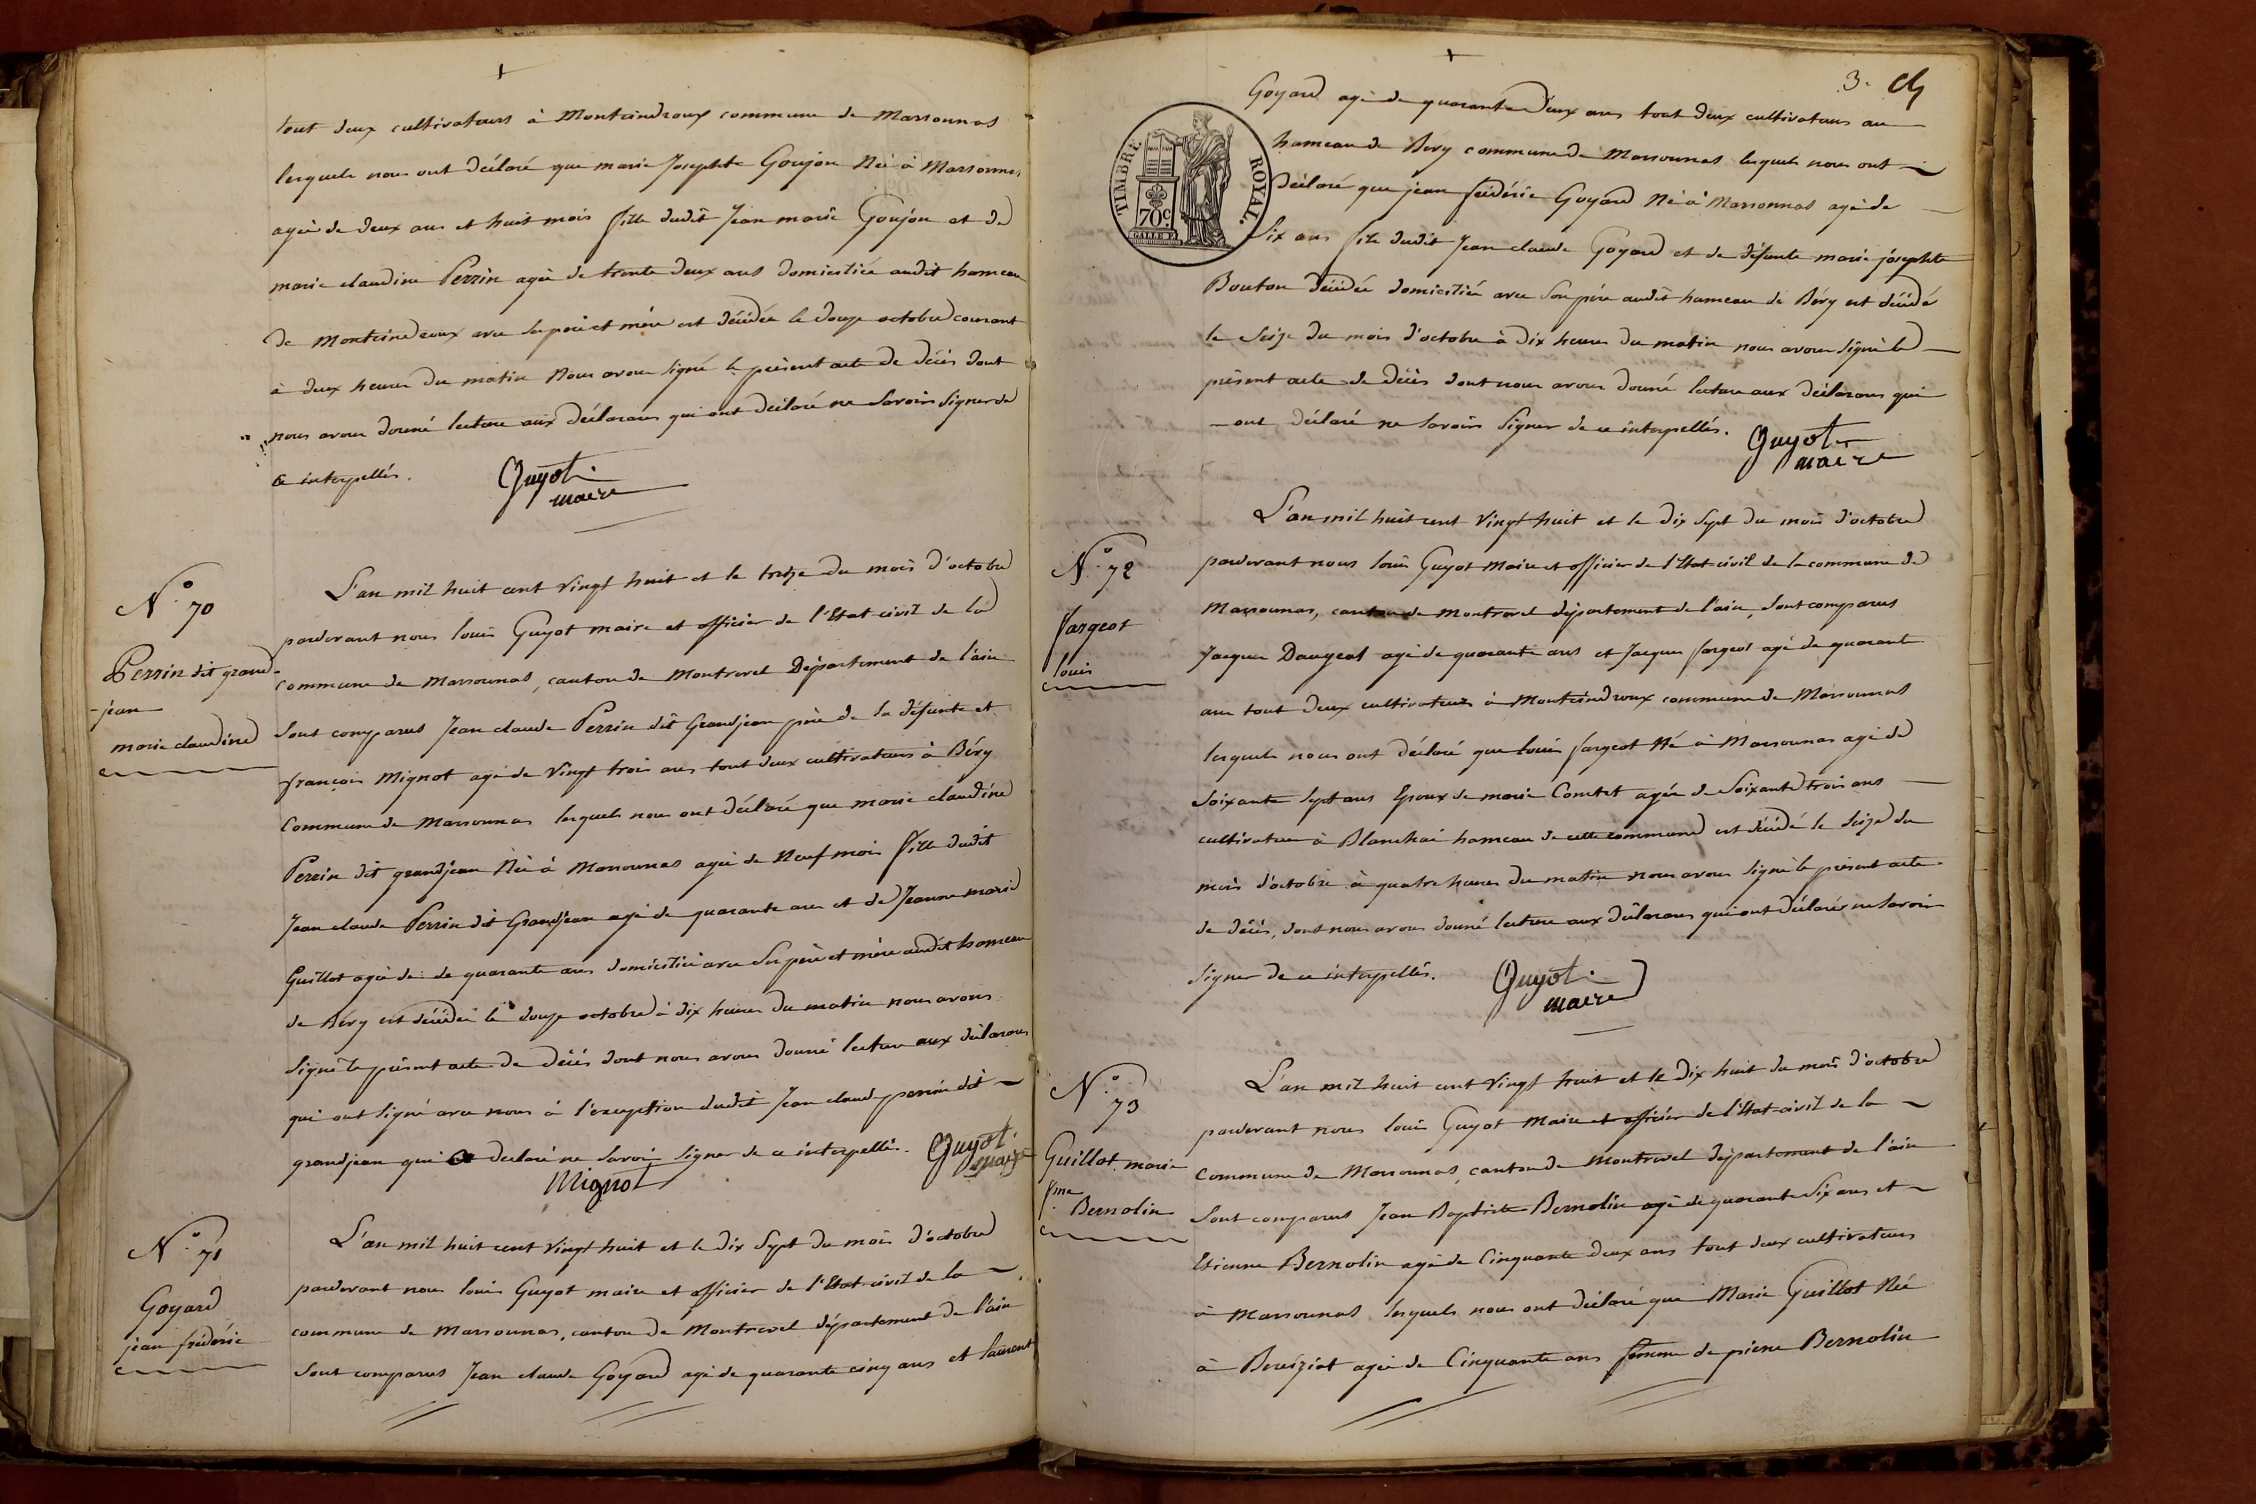 tout deux cultivateurs à Monteindroux commune de Marsonnas
lesquels nous ont déclaré que marie Josephte Goujon Née à Marsonnas
agée de deux ans et huit mois fille dudit Jean marie Goujon et de
marie claudine Perrin agée de trente deux ans domiciliée audit hameau
de Monteindroux avec ses père et mère est décédée le douze octobre courant
à deux heures du matin Nous avons signé le présent acte de décès dont
nous avons donné lecture aux déclarans qui ont déclaré ne Savoir Signer de
ce interpellés.
Guyot
maire
N.o 70
Perrin dit grand
jean
marie claudine
L'an mil huit cent vingt huit et le treize du mois d'octobre
pardevant nous louis Guyot maire et officier de l'Etat civil de la
commune de Marsonnas, canton de Montrevel Département de l'ain
Sont comparus Jean claude Perrin dit Grandjean père de la défunte et
françois Mignot agé de Vingt trois ans tout deux cultivateurs à Béry
Commune de Marsonnas lesquels nous ont déclaré que marie claudine
Perrin dit grandjean Née à Marsonnas agée de Neuf mois fille dudit
Jean claude Perrin dit Grandjean agé de quarante ans et de Jeanne marie
Guillot agée de de quarante ans domiciliée avec Ses père et mère audit hameau
de Béry est décédée le douze octobre à dix heures du matin nous avons
Signé le présent acte de décès dont nous avons donné lecture aux déclarans
qui ont signé avec nous à l'exception dudit Jean claude perrin dit
grandjean qui a declaré ne Savoir Signer de ce interpellé. Guyot
maire
Mignot
N.o 71
Goyard
jean frédéric
L'an mil huit cent vingt huit et le dix Sept du mois d'octobre
pardevant nous louis Guyot maire et officier de l'Etat civil de la
commune de Marsonnas, canton de Montrevel département de l'ain
Sont comparus Jean claude Goyard agé de quarante cinq ans et laurent
3.
TIMBRE ROYAL.
70c
Goyard agé de quarante deux ans tout deux cultivateurs au
hameau de Béry commune de Marsonnas lesquels nous ont
déclaré que jean frédéric Goyard Né à Marsonnas agé de
Six ans fils dudit Jean claude Goyard et de défunte marie josephte
Bouton décédée domicilié avec Son père audit hameau de Béry est décédé
le Seize du mois d'octobre à dix heures du matin nous avons signé le
présent acte de décès dont nous avons donné lecture aux déclarans qui
ont déclaré ne Savoir Signer de ce interpellés.
Guyot
maire
N.o 72
fargeot
louis
L'an mil huit cent Vingt huit et le dix Sept du mois d'octobre
pardevant nous louis Guyot Maire et officier de l'Etat civil de la commune de
Marsonnas, canton de Montrevel département de l'ain, Sont comparus
Jacques Daugeat agé de quarante ans et Jacques fargeot agé de quarant
ans tout deux cultivateurs à Monteindroux commune de Marsonnas
lesquels nous ont déclaré que louis fargeot Né à Marsonnas agé de
Soixante Sept ans Epoux de marie Comtet agée de Soixante trois ans
cultivateur à Blanchai hameau de cette commune est décédé le Seize du
mois d'octobre à quatre heures du matin nous avons Signé le présent acte
de décès, dont nous avons donné lecture aux déclarans qui ont déclarér ne Savoir
Signer de ce interpellés.
Guyot
maire
N.o 73
Guillot marie
fme
Bernolin
L'an mil huit cent Vingt huit et le dix huit du mois d'octobre
pardevant nous louis Guyot Maire et officier de l'Etat civil de la
Commune de Marsonnas, canton de Montrevel département de l'ain
Sont comparus Jean Baptiste Bernolin agé de quarante Six ans et
Etienne Bernolin agé de Cinquante deux ans tout deux cultivateurs
à Marsonnas lesquels nous ont déclaré que Marie Guillot Née
à Bereiziat agée de Cinquante ans femme de pierre Bernolin